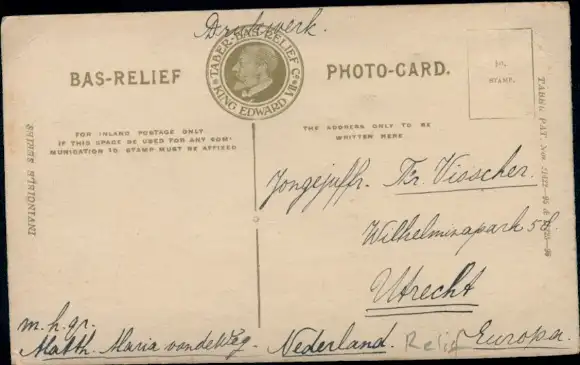 Drukwerk.
BAS-RELIEF
TABER-BAS-RELIEF Co.
KING EDWARD VII
PHOTO-CARD.
½D.
STAMP.
FOR INLAND POSTAGE ONLY
IF THIS SPACE BE USED FOR ANY COM-
MUNICATION ½D STAMP MUST BE AFFIXED
THE ADDRESS ONLY TO BE
WRITTEN HERE
INVINCIBLE SERIES
TABER PAT. Nos.
Jongejuffr. Tr. Visscher.
Wilhelminapark
Utrecht
m. h. gr.
Matth. Maria van de Weg.
Nederland.
Relief
Europa.